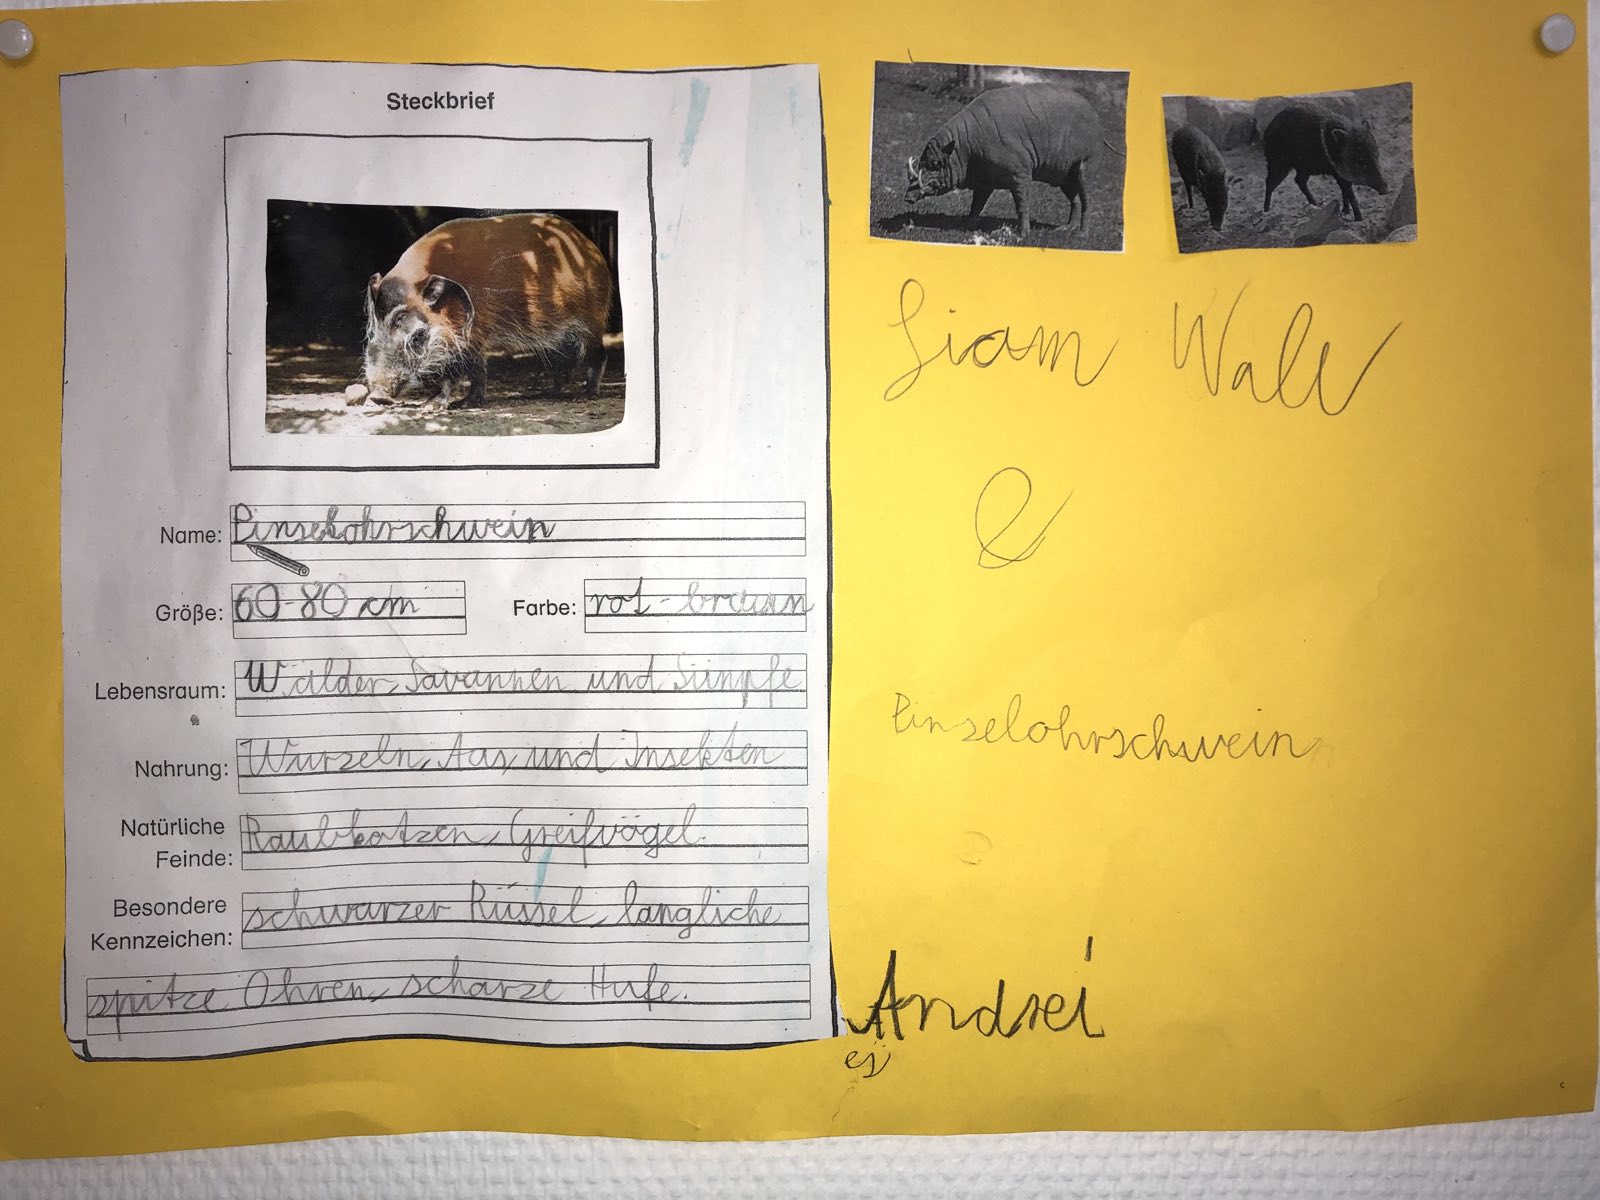 Steckbrief
Name: Pinselohrschwein
Größe: 60-80 cm Farbe: rot-braun
Lebensraum: Wälder, Savannen und Sümpfe
Nahrung: Wurzeln, Aas, und Insekten
Natürliche
Feinde: Raubkatzen, Greifvögel.
Besondere
Kennzeichen: schwarzer Rüssel, langliche
spitze Ohren, scharze Hufe.
Liam
&
Pinselohrschwein
Andrei